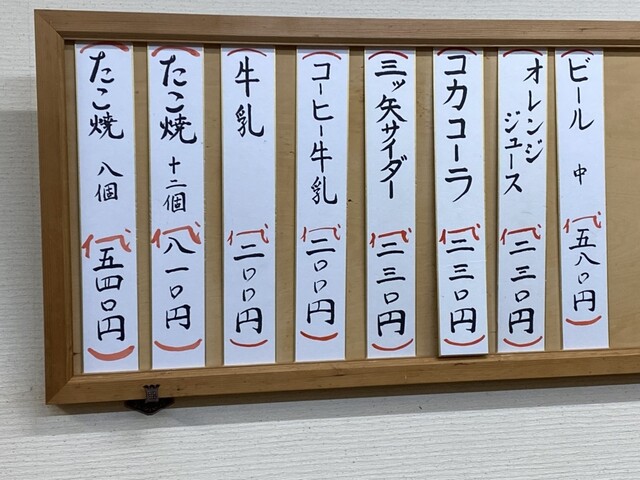 ビール 中 代 五八〇円
オレンジジュース 代 二三〇円
コカコーラ 代 二三〇円
三ッ矢サイダー 代 二三〇円
コーヒー牛乳 代 二〇〇円
牛乳 代 二〇〇円
たこ焼 十二個 代 八一〇円
たこ焼 八個 代 五四〇円